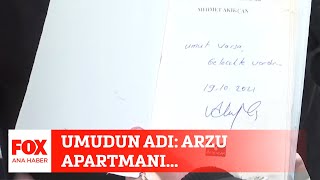 MEHMET AKIF CAN
umut varsa,
gelecekte vardır.
19.10.2021
FOX
ANA HABER
UMUDUN ADI: ARZU
APARTMANI...